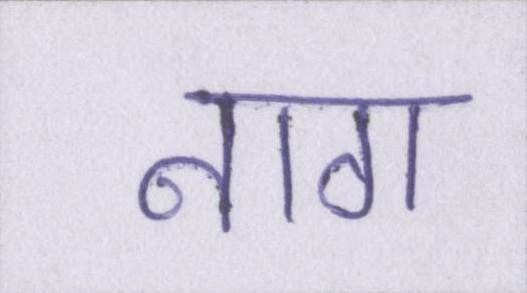 नाग